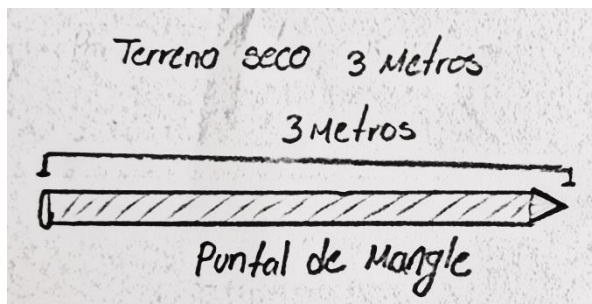 Terreno seco 3 Metros
3 Metros
Puntal de Mangle